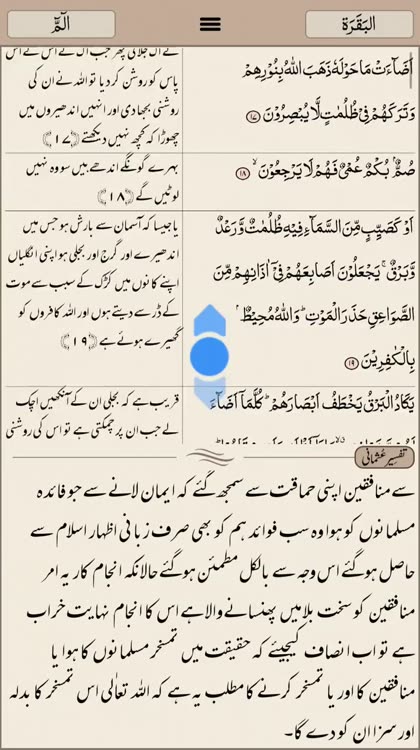 البَقَرَة
الٓمّٓ
اَضَآءَتْ مَا حَوْلَهٗ ذَهَبَ اللّٰهُ بِنُوْرِهِمْ
وَتَرَكَهُمْ فِیْ ظُلُمٰتٍ لَّا یُبْصِرُوْنَ ۱۷
صُمٌّۢ بُكْمٌ عُمْیٌ فَهُمْ لَا یَرْجِعُوْنَ ۙ ۱۸
اَوْ كَصَیِّبٍ مِّنَ السَّمَآءِ فِیْهِ ظُلُمٰتٌ وَّرَعْدٌ
وَّبَرْقٌ ۚ یَجْعَلُوْنَ اَصَابِعَهُمْ فِیْۤ اٰذَانِهِمْ مِّنَ
الصَّوَاعِقِ حَذَرَ الْمَوْتِ ؕ وَاللّٰهُ مُحِیْطٌۢ
بِالْكٰفِرِیْنَ ۱۹
یَكَادُ الْبَرْقُ یَخْطَفُ اَبْصَارَهُمْ ؕ كُلَّمَاۤ اَضَآءَ
پاس کو روشن کر دیا تو اللہ نے ان کی
روشنی بجھا دی اور انہیں اندھیروں میں
چھوڑا کہ کچھ نہیں دیکھتے ﴿۱۷﴾
بہرے گونگے اندھے ہیں سو وہ نہیں
لوٹیں گے ﴿۱۸﴾
یا جیسا کہ آسمان سے بارش ہو جس میں
اندھیرے اور گرج اور بجلی ہو اپنی انگلیاں
اپنے کانوں میں کڑک کے سبب سے موت
کے ڈر سے دیتے ہوں اور اللہ کافروں کو
گھیرے ہوئے ہے ﴿۱۹﴾
قریب ہے کہ بجلی ان کے آنکھیں اچک
لے جب ان پر چمکتی ہے تو اس کی روشنی
تفسیرِ عثمانی
سے منافقین اپنی حماقت سے سمجھ گئے کہ ایمان لانے سے جو فائدہ
مسلمانوں کو ہوا وہ سب فوائد ہم کو بھی صرف زبانی اظہار اسلام سے
حاصل ہو گئے اس وجہ سے بالکل مطمئن ہو گئے حالانکہ انجام کار یہ امر
منافقین کو سخت بلا میں پھنسانے والا ہے اس کا انجام نہایت خراب
ہے تو اب انصاف کیجیئے کہ حقیقت میں تمسخر مسلمانوں کا ہوا یا
منافقین کا اور یا تمسخر کرنے کا مطلب یہ ہے کہ اللہ تعالٰی اس تمسخر کا بدلہ
اور سزا ان کو دے گا۔